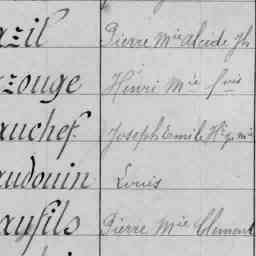 azil Pierre Mie alcide Jh
zouge Henri Mie fois
auchef Joseph Emile Hte Mie
audouin Louis
aufils Pierre Mie Clement